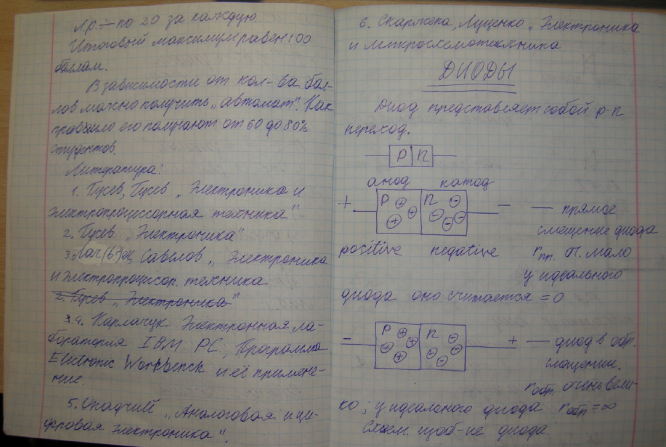 Л.р. – по 20 за каждую.
Итоговый максимум равен 100
баллам.
В зависимости от кол-ва бал-
лов можно получить „автомат". Как
правило его получают от 60 до 80%
студентов.
Литература:
1. Гусев, Гусев „Электроника и
электропроцессорная техника"
2. Гусев „Электроника"
Савелов „Электроника
и электропроцесор. техника
2. Гусев „Электроника"
3.4. Карлачук Электронная ла-
боратория IBM PC, Программа
Electronic Workbench и её примене-
ние
5. Опадчий „Аналоговая и ци-
фровая электроника".
6. Скаржепа, Луценко „Электроника
и микросхемотехника
ДИОДЫ
Диод представляет собой p-n
переход.
P n
анод катод
+ P n – — прямое
смещение диода
positive negative rпр. П. мало
у идеального
диода оно считается = 0
– P n + — диод в обр.
смещении.
rобр очень вели-
ко; у идеального диода rобр = ∞
диода